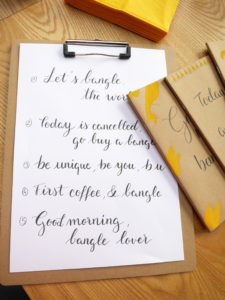 ① Let's bangle
the wor
② Today is cancelled
go buy a bang
③ be unique, be you, bu
④ First coffee, & bangle
⑤ Good morning,
bangle lover
G
Today
ba